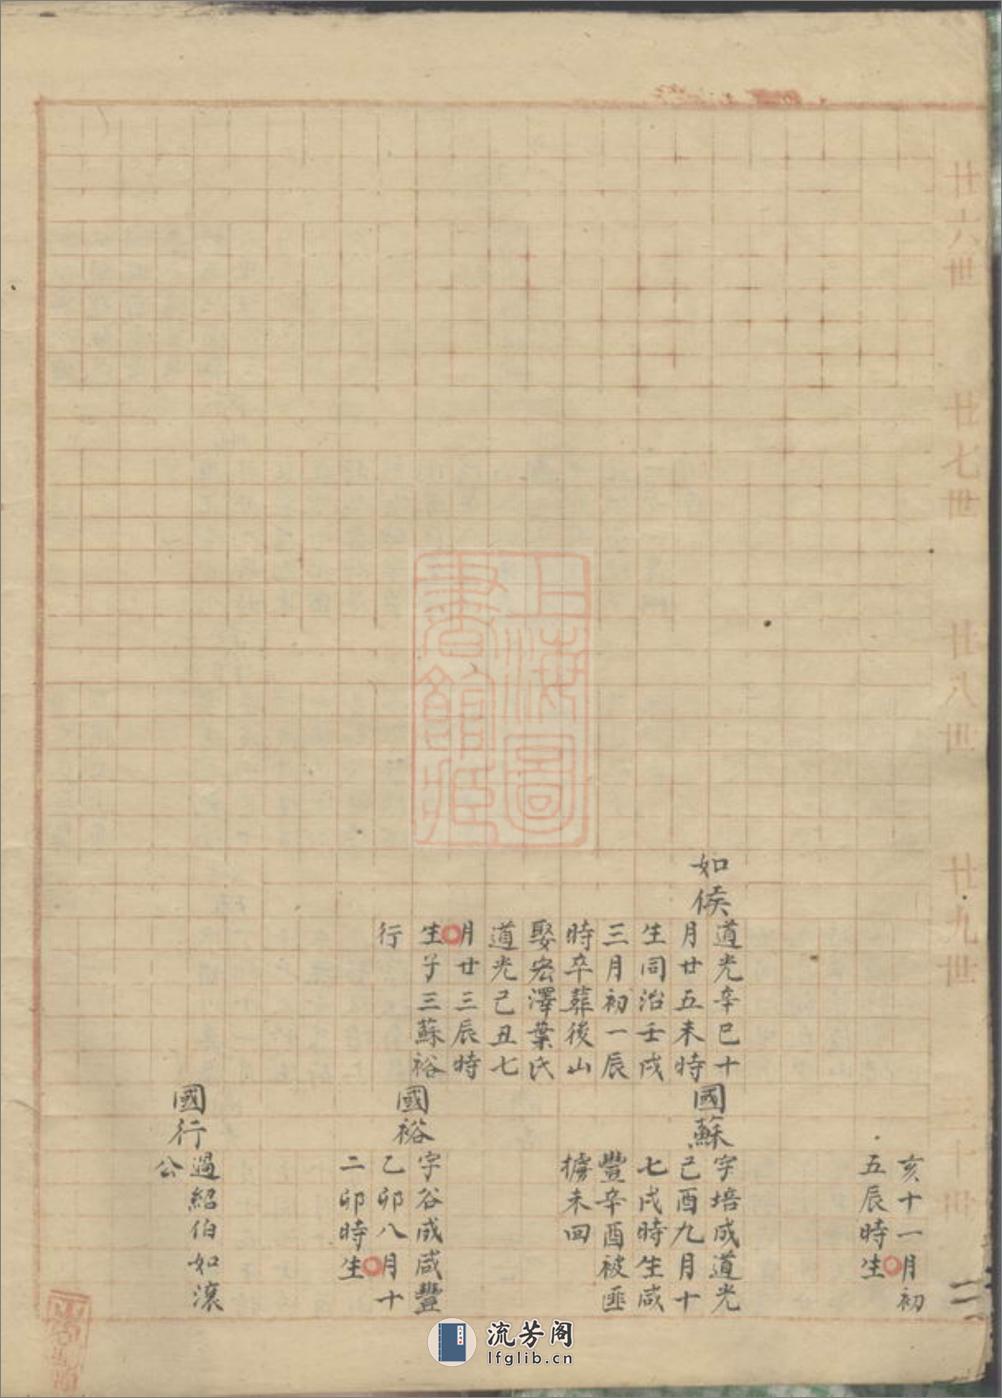 廿六世
廿七世
廿八世
廿九世
三十世
亥十一月初
五辰時生
如侯
道光辛巳十
月廿五未時
生同治壬戌
三月初一辰
時卒葬後山
娶宏澤葉氏
道光己丑七
月廿三辰時
生子三蘇裕
行
國蘇
字培成道光
己酉九月十
七戌時生咸
豐辛酉被匪
擄未回
國裕
字谷成咸豐
乙卯八月十
二卯時生
國行
過紹伯如滾
公
上海圖
書館藏
流芳阁
lfglib.cn